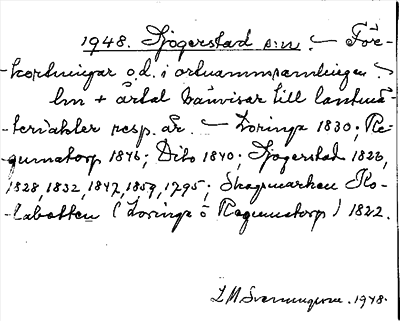 1948. Sjogerstad s:n. — För-
kortningar o.d. i ortnamnssamlingen. —
lm + årtal hänvisar till lantmä-
teriakter resp. år. — Loringa 1830; Re-
gumatorp 1846; Dito 1840; Sjogerstad 1823,
1828, 1832, 1847, 1859, 1795; Skogsmarken Ko-
labotten (Loringa o Regumatorp) 1822.
L M Svenningson. 1948.